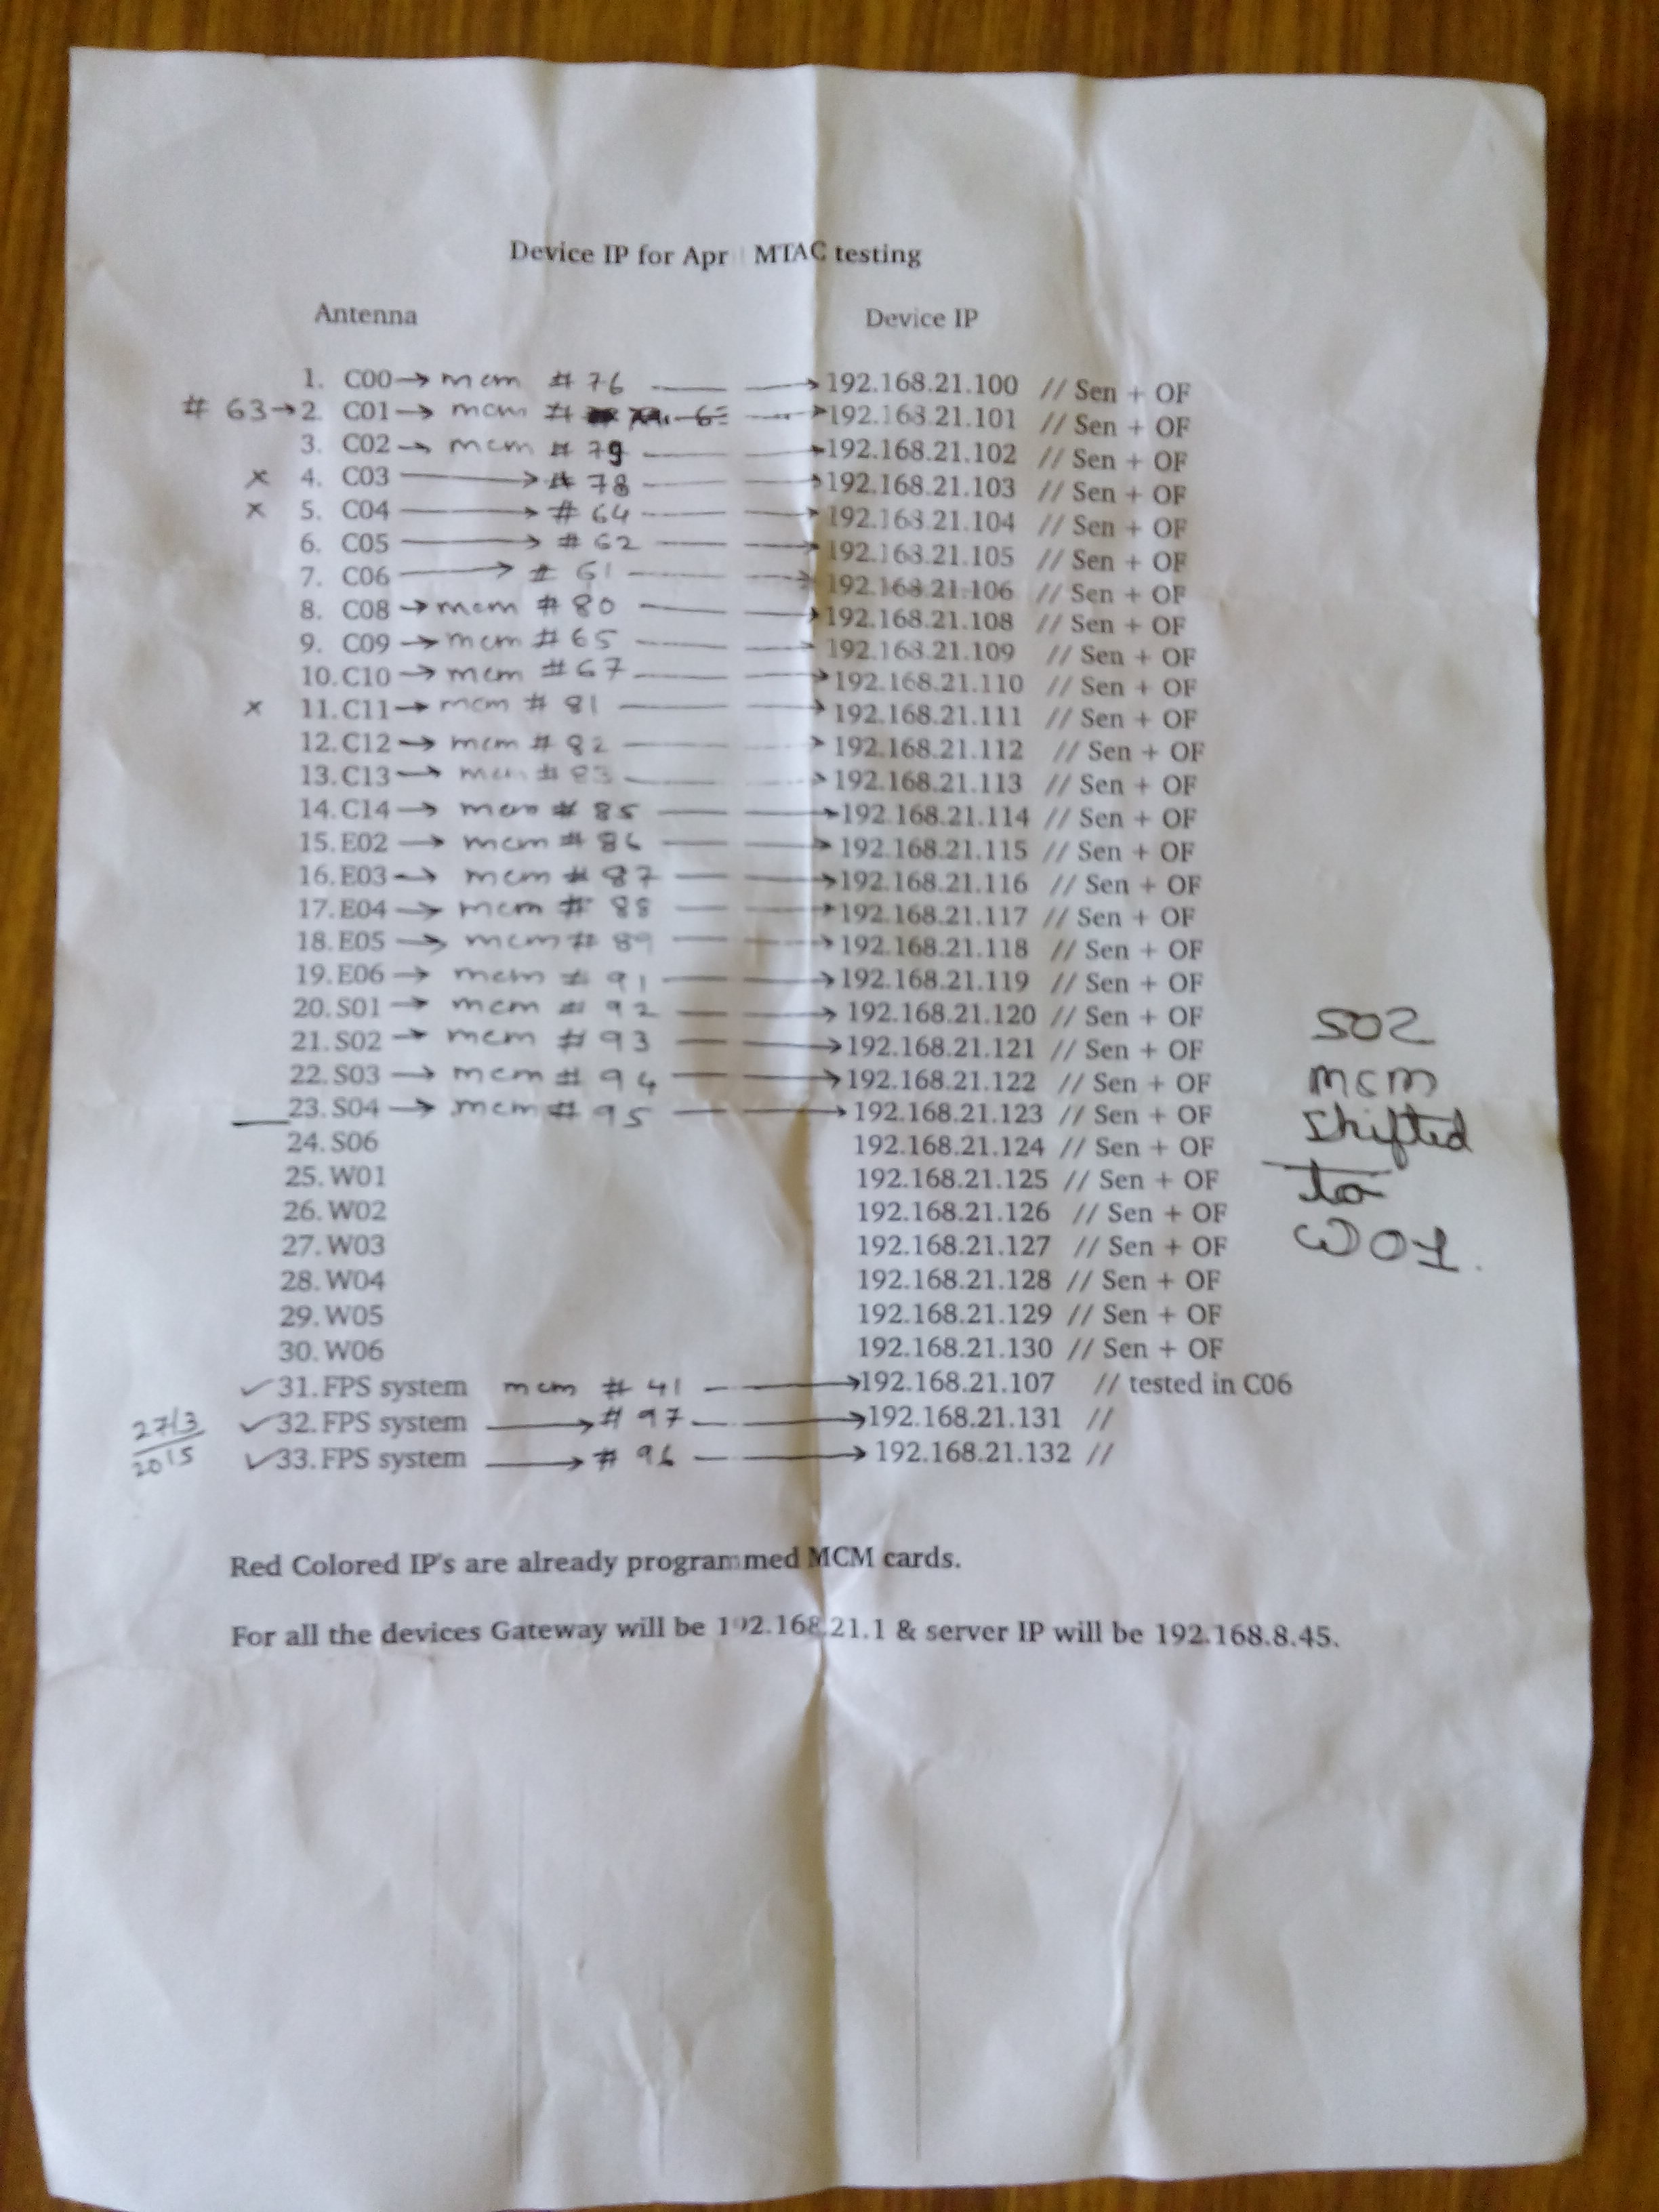 Device IP for Apr MTAC testing
Antenna Device IP
1. C00 → mcm # 76 → 192.168.21.100 // Sen + OF
# 63 → 2. C01 → mcm # → 192.168.21.101 // Sen + OF
3. C02 → mcm # 79 → 192.168.21.102 // Sen + OF
x 4. C03 → # 78 → 192.168.21.103 // Sen + OF
x 5. C04 → # 64 → 192.168.21.104 // Sen + OF
6. C05 → # 62 → 192.168.21.105 // Sen + OF
7. C06 → # 61 → 192.168.21.106 // Sen + OF
8. C08 → mcm # 80 → 192.168.21.108 // Sen + OF
9. C09 → mcm # 65 → 192.168.21.109 // Sen + OF
10. C10 → mcm # 67 → 192.168.21.110 // Sen + OF
x 11. C11 → mcm # 81 → 192.168.21.111 // Sen + OF
12. C12 → mcm # 82 → 192.168.21.112 // Sen + OF
13. C13 → mcm # 83 → 192.168.21.113 // Sen + OF
14. C14 → mcm # 85 → 192.168.21.114 // Sen + OF
15. E02 → mcm # 86 → 192.168.21.115 // Sen + OF
16. E03 → mcm # 87 → 192.168.21.116 // Sen + OF
17. E04 → mcm # 88 → 192.168.21.117 // Sen + OF
18. E05 → mcm # 89 → 192.168.21.118 // Sen + OF
19. E06 → mcm # 91 → 192.168.21.119 // Sen + OF
20. S01 → mcm # 92 → 192.168.21.120 // Sen + OF
21. S02 → mcm # 93 → 192.168.21.121 // Sen + OF
22. S03 → mcm # 94 → 192.168.21.122 // Sen + OF
23. S04 → mcm # 95 → 192.168.21.123 // Sen + OF
24. S06 192.168.21.124 // Sen + OF
25. W01 192.168.21.125 // Sen + OF
26. W02 192.168.21.126 // Sen + OF
27. W03 192.168.21.127 // Sen + OF
28. W04 192.168.21.128 // Sen + OF
29. W05 192.168.21.129 // Sen + OF
30. W06 192.168.21.130 // Sen + OF
✓ 31. FPS system mcm # 41 → 192.168.21.107 // tested in C06
✓ 32. FPS system → # 97 → 192.168.21.131 //
✓ 33. FPS system → # 96 → 192.168.21.132 //
27/3
2015
S02
mcm
shifted
to
W01.
Red Colored IP's are already programmed MCM cards.
For all the devices Gateway will be 192.168.21.1 & server IP will be 192.168.8.45.